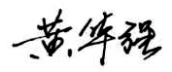 黄华强